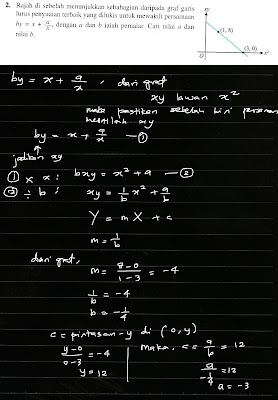 2. Rajah di sebelah menunjukkan sebahagian daripada graf garis
lurus penyuaian terbaik yang dilukis untuk mewakili persamaan
by = x + a/x, dengan a dan b ialah pemalar. Cari nilai a dan
nilai b.
xy
(1, 8)
(3, 0)
O
x²
by = x + a/x, dari graf
xy lawan x²
maka pastikan sebelah kiri persamaan
mestilah xy
by = x + a/x —①
jadikan xy
① × x: bxy = x² + a —②
② ÷ b: xy = 1/b x² + a/b
Y = mX + c
m = 1/b
dari graf,
m = (8-0)/(1-3) = -4
1/b = -4
b = -1/4
c = pintasan-y di (0, y)
(y-0)/(0-3) = -4
y = 12
maka, c = a/b = 12
a/(-1/4) = 12
a = -3